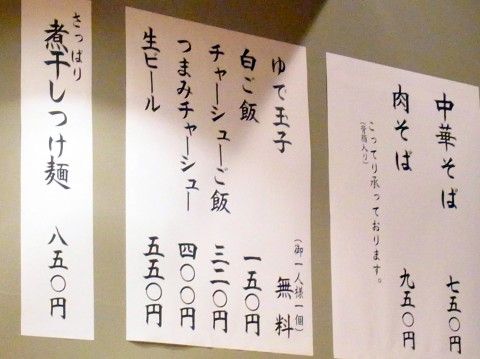 中華そば 七五〇円
肉そば 九五〇円
(背脂入り)
こってり承っております。
ゆで玉子 無料
(御一人様一個)
白ご飯 一五〇円
チャーシューご飯 三二〇円
つまみチャーシュー 四〇〇円
生ビール 五五〇円
さっぱり
煮干しつけ麺 八五〇円